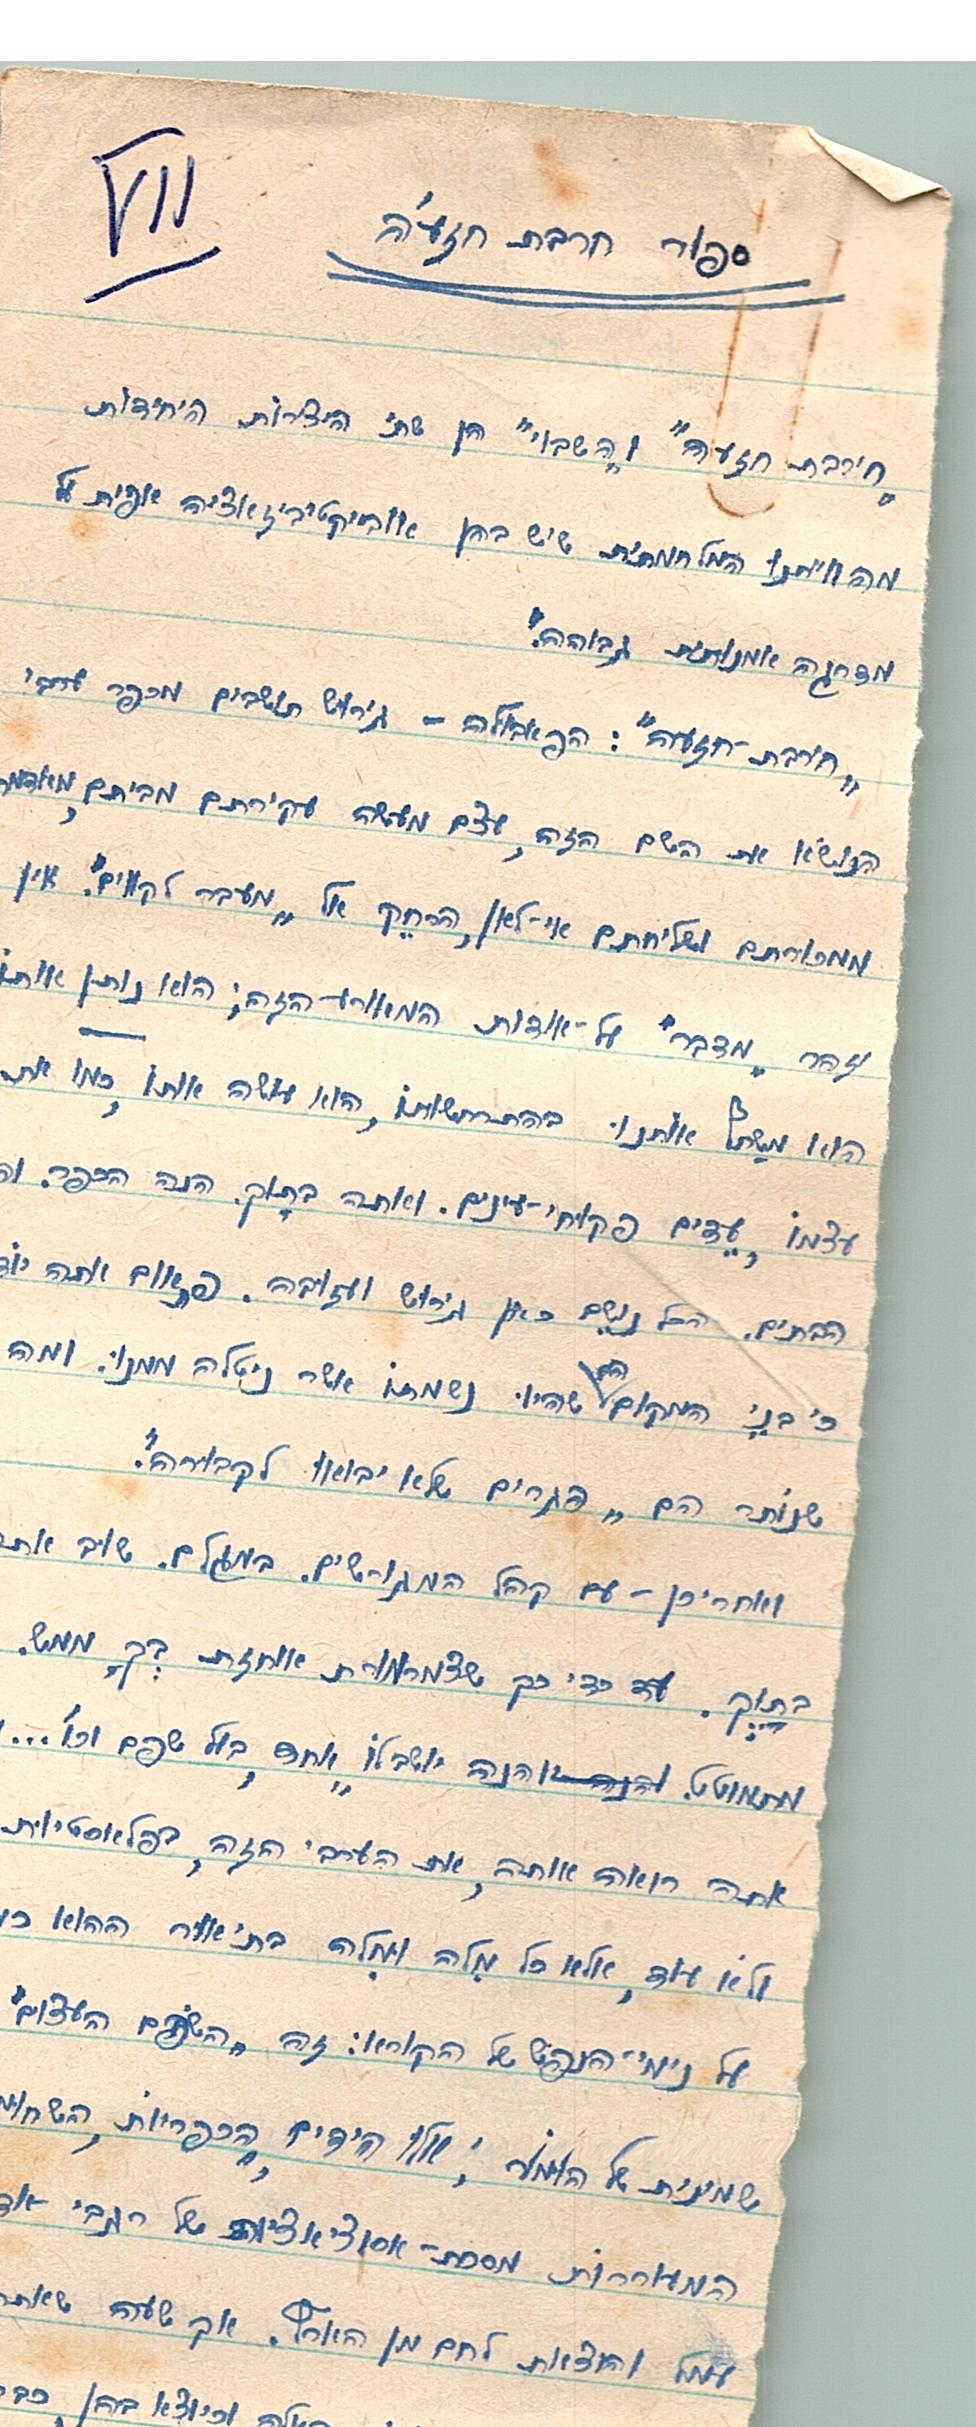 VII
ספור חרבת חזעה
"חירבת חזעה" ו"השבוי" הן שתי היצירות היחידות
מהויתנו המלחמתית שיש בהן אובייקטיביזאציה אפית על
מדרגה אמנותית גבוהה.
"חירבת-חזעה": הפאבולה – גירוש תושבים מכפר ערבי
הנושא את השם הזה, עצם מעשה עקירתם מביתם, מאדמת
ממכורתם ושליחתם אי-לאן, הרחק אל "מעבר לקוים". אין
יזהר "מדבר" על-אודות המאורע הזה; הוא נותן אותו
הוא משתף אותנו בהתרחשותו, הוא עושה אותנו, כמו את
עצמו, עדים פקוחי-עינים. ואתה בתוך. הנה הכפר.
הבתים. הכל נושם כאן גירוש ועזובה. פתאום אתה
כי בני המקום הם שהיו נשמתו אשר ניטלה ממנו. ומה
שנותר הם "פגרים שלא יבואו לקבורה".
ואחרי-כן – עם קהל המגורשים. במעגלם. שוב אתה
בתוך. עד כדי כך שצמרמורת אוחזת בך ממש.
מתמוטט. והנה יושב לו "אחד, בעל שפם וכו'...
אתה רואה אותה, את הערבי הזה, בפלאסטיות
ולא עוד, אלא כל מלה ומלה בתיאור ההוא
על נימי-הנפש של הקורא: זה "השפם העצום"
שמינית של הומור; אלו הידים הכפריות, השחומות
המעוררות מסכת-אסוציאציות של רגבי
עמל והוצאת לחם מן הארץ. אך שעה שאתה